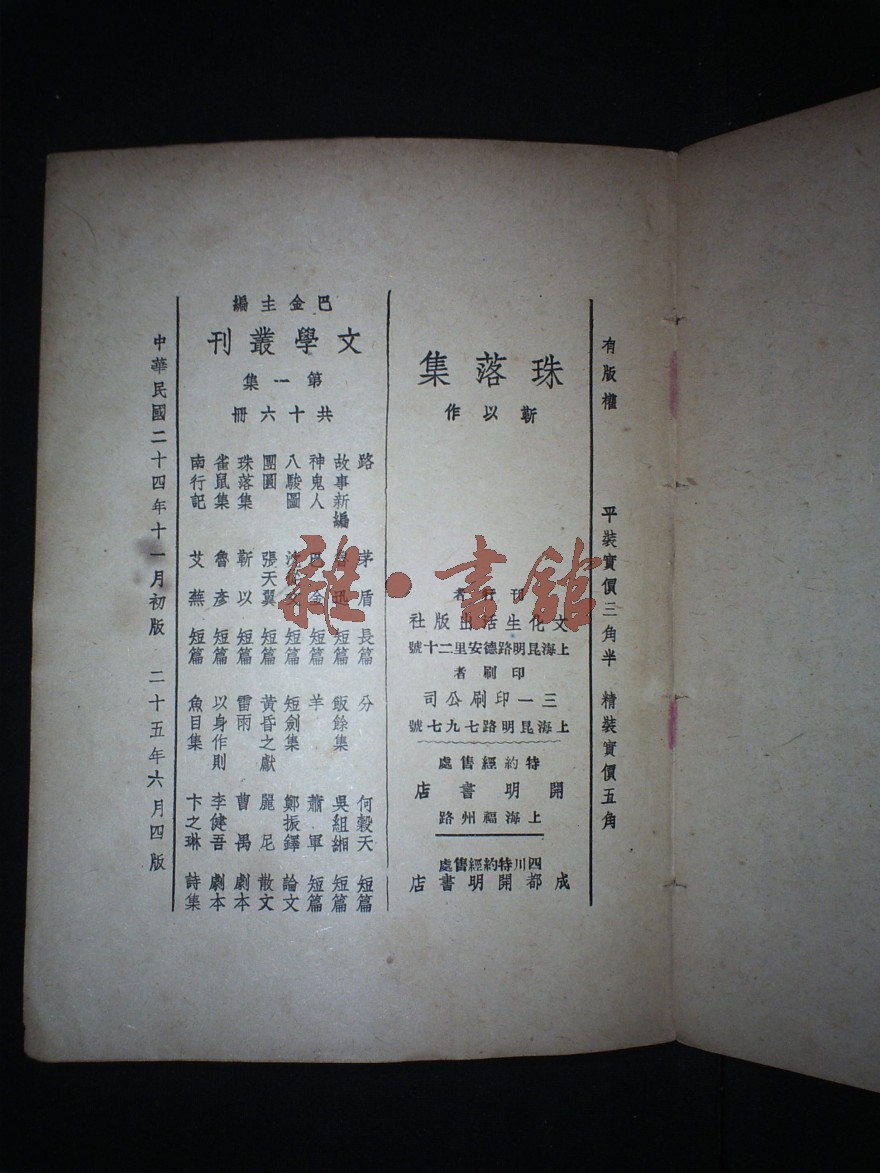 有版權 平裝實價三角半 精裝實價五角
珠落集
靳以作
刊行者
文化生活出版社
上海昆明路德安里二十號
印刷者
三一印刷公司
上海昆明路七九七號
特約經售處
開明書店
上海福州路
四川特約經售處
成都開明書店
巴金主編
文學叢刊
第一集
共十六冊
路 茅盾 長篇 分 何穀天 短篇
故事新編 魯迅 短篇 飯餘集 吳組緗 短篇
神鬼人 巴金 短篇 羊 蕭軍 短篇
八駿圖 沈從文 短篇 短劍集 鄭振鐸 論文
團圓 張天翼 短篇 黃昏之獻 麗尼 散文
珠落集 靳以 短篇 雷雨 曹禺 劇本
雀鼠集 魯彥 短篇 以身作則 李健吾 劇本
南行記 艾蕪 短篇 魚目集 卞之琳 詩集
中華民國二十四年十一月初版 二十五年六月四版
雜·書館